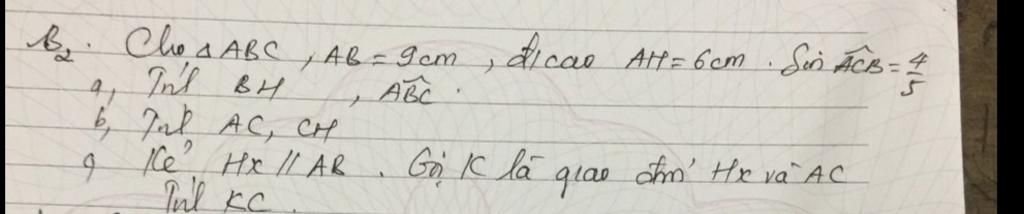 B2. Cho ΔABC, AB = 9cm, đ/cao AH = 6cm. Sin ACB = 4/5
a, Tính BH, ABC.
b, Tính AC, CH
c, Kẻ Hx // AB. Gọi K là giao điểm Hx và AC
Tính KC.